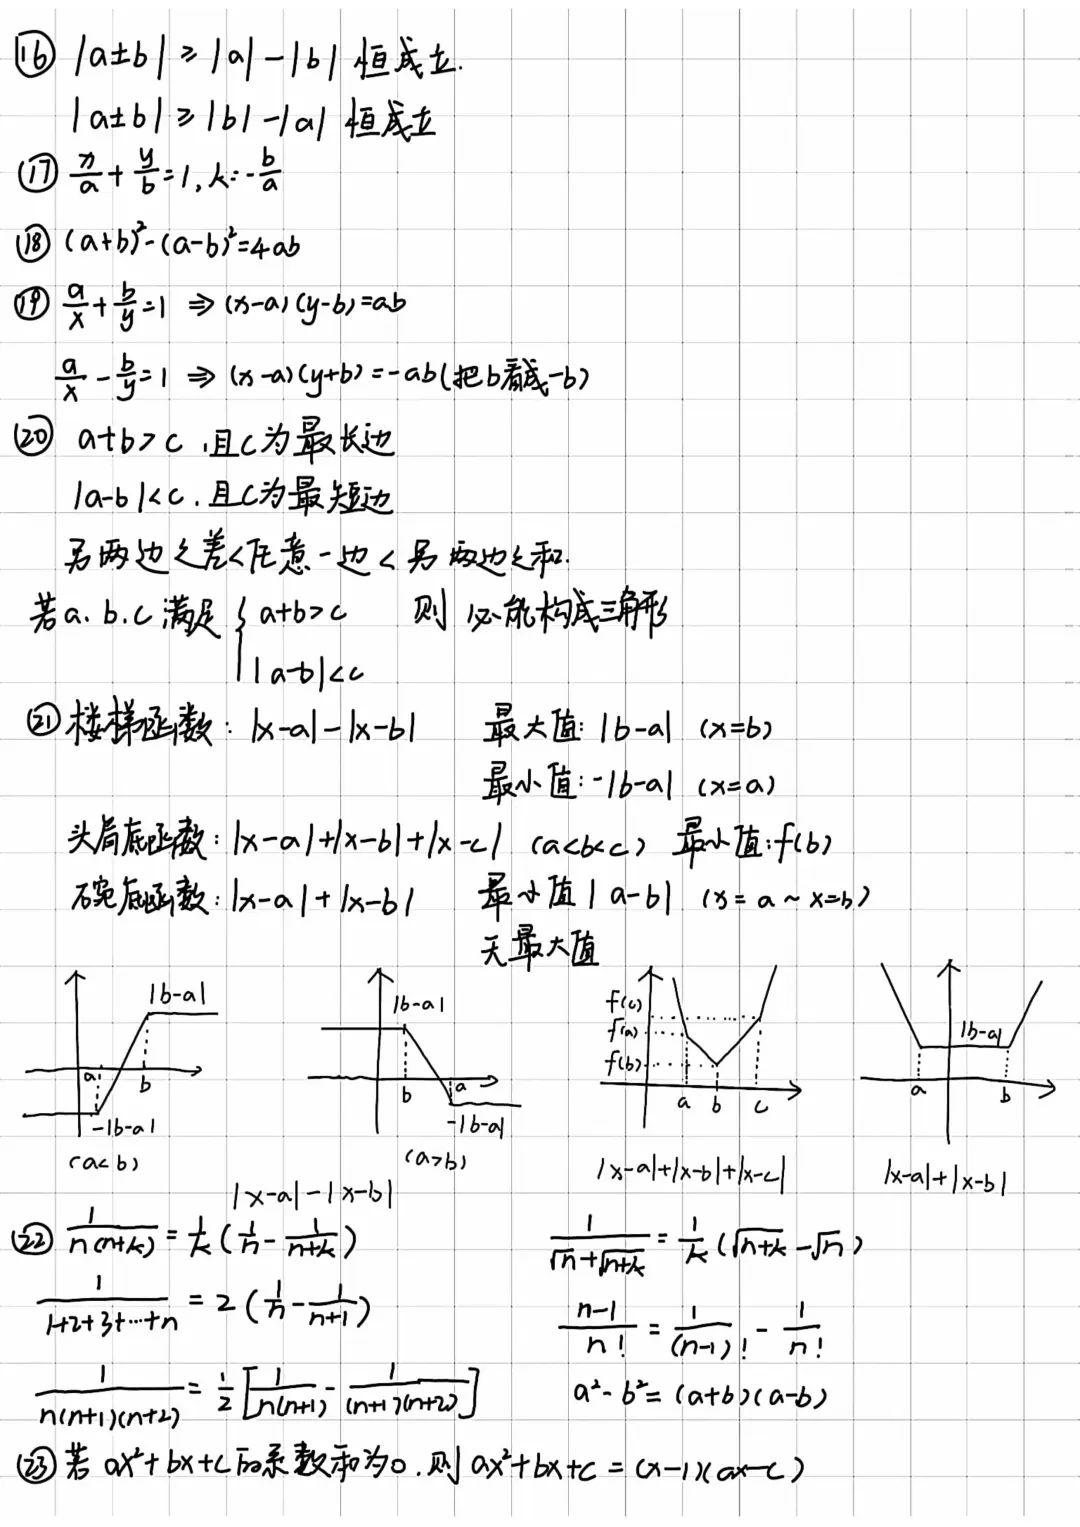 ⑯ |a±b| ≥ |a|-|b| 恒成立.
|a±b| ≥ |b|-|a| 恒成立
⑰ x/a + y/b = 1, k=-b/a
⑱ (a+b)²-(a-b)²=4ab
⑲ a/x + b/y = 1 ⇒ (x-a)(y-b)=ab
a/x - b/y = 1 ⇒ (x-a)(y+b)=-ab(把b看成-b)
⑳ a+b>c ,且c为最长边
|a-b|<c, 且c为最短边
另两边之差<任意一边<另两边之和.
若a.b.c满足 { a+b>c 则 必能构成三角形
|a-b|<c
㉑ 楼梯函数: |x-a|-|x-b| 最大值: |b-a| (x=b)
最小值: -|b-a| (x=a)
头肩底函数: |x-a|+|x-b|+|x-c| (a<b<c) 最小值:f(b)
碗底函数: |x-a|+|x-b| 最小值 |a-b| (x=a~x=b)
无最大值
|b-a|
a
b
-|b-a|
(a<b)
|b-a|
b
a
-|b-a|
(a>b)
|x-a|-|x-b|
f(c)
f(a)
f(b)
a b c
|x-a|+|x-b|+|x-c|
|b-a|
a b
|x-a|+|x-b|
㉒ 1/(n(n+k)) = 1/k (1/n - 1/(n+k)) 1/(√n+√(n+k)) = 1/k (√(n+k) - √n)
1/(1+2+3+…+n) = 2 (1/n - 1/(n+1)) (n-1)/n! = 1/(n-1)! - 1/n!
1/(n(n+1)(n+2)) = 1/2 [1/(n(n+1)) - 1/((n+1)(n+2))] a²-b²=(a+b)(a-b)
㉓ 若 ax²+bx+c的系数和为0,则 ax²+bx+c = (x-1)(ax-c)